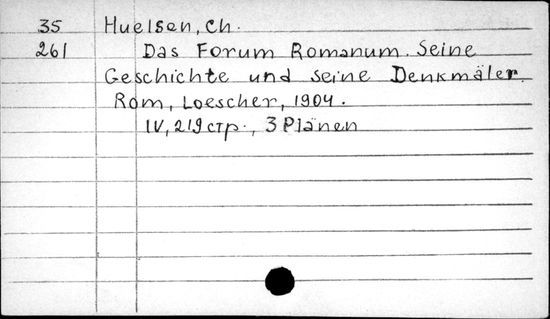 35 Huelsen, Ch.
261 Das Forum Romanum. Seine
Geschichte und seine Denkmäler.
Rom, Loescher, 1904.
IV, 219 стр., 3 Plänen